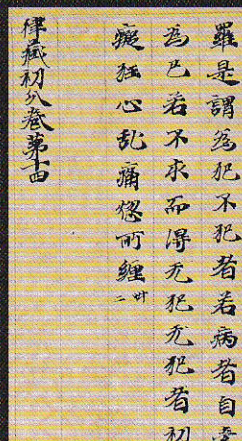 羅是謂為犯不犯者若病者自
為已若不求而得无犯无犯者初
癡狂心乱痛惱所纏二卌
律藏初分卷第十四